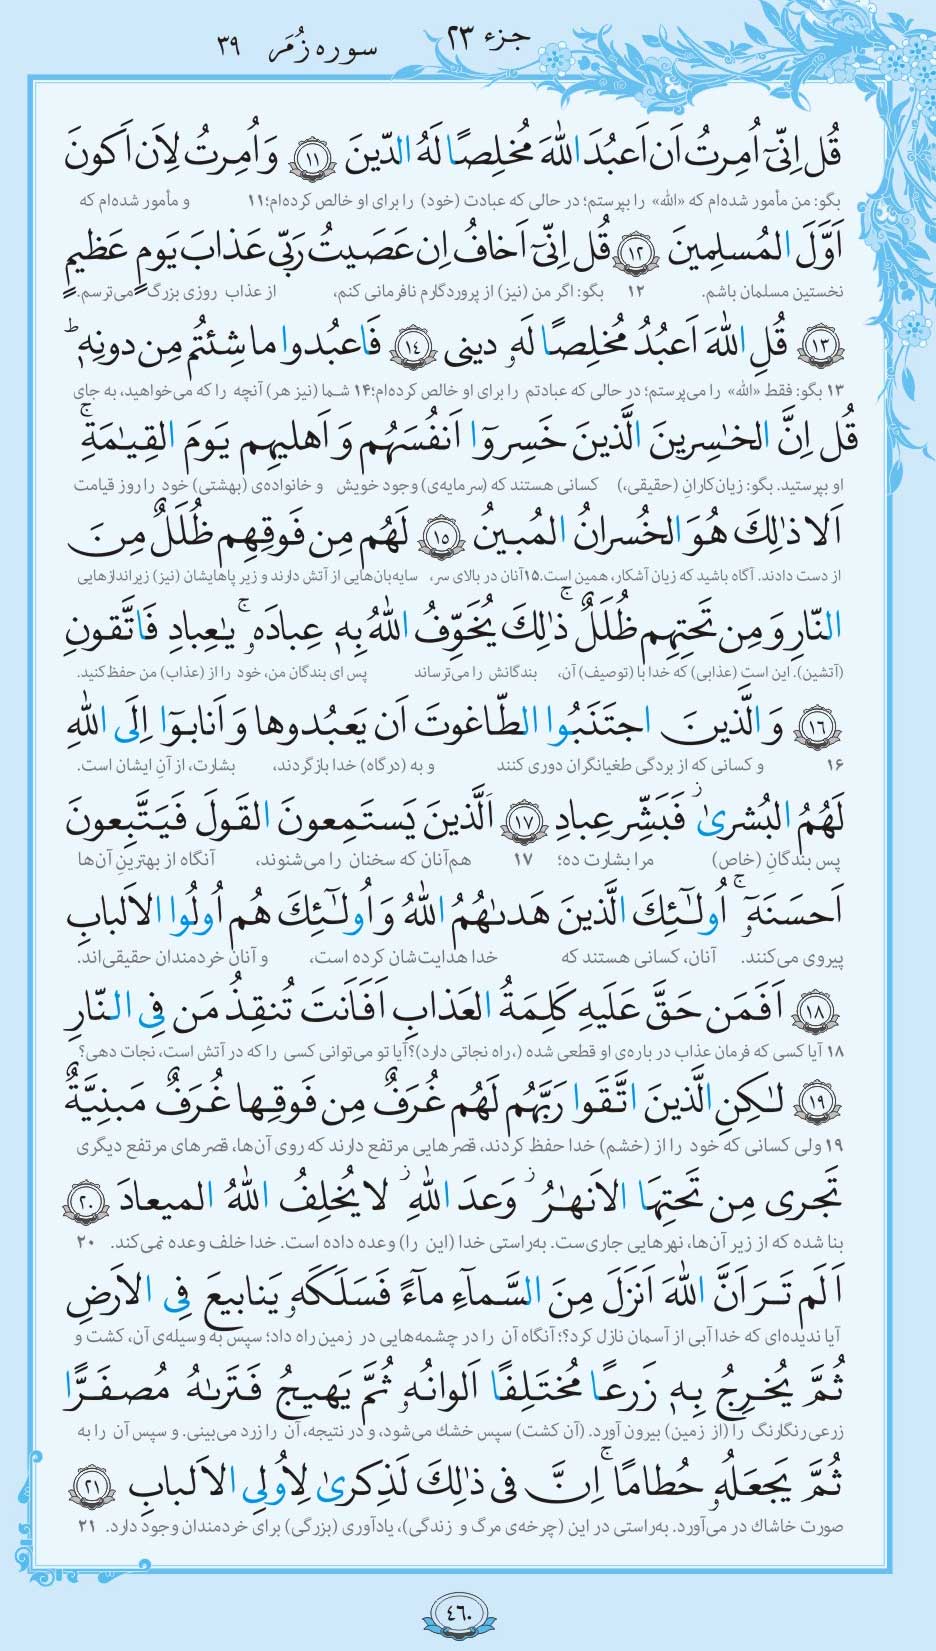 جزء ۲۳
سوره زُمَر ۳۹
قُل اِنّىٓ اُمِرتُ اَن اَعبُدَ اللّٰهَ مُخلِصًا لَهُ الدّينَ ﴿۱۱﴾ وَ اُمِرتُ لِاَن اَكونَ
بگو: من مأمور شده‌ام که «الله» را بپرستم؛ در حالی که عبادت (خود) را برای او خالص کرده‌ام؛ ۱۱ و مأمور شده‌ام که
اَوَّلَ المُسلِمينَ ﴿۱۲﴾ قُل اِنّىٓ اَخافُ اِن عَصَيتُ رَبّى عَذابَ يَومٍ عَظيمٍ
نخستین مسلمان باشم. ۱۲ بگو: اگر من (نیز) از پروردگارم نافرمانی کنم، از عذاب روزی بزرگ می‌ترسم.
﴿۱۳﴾ قُلِ اللّٰهَ اَعبُدُ مُخلِصًا لَهۥ دينى ﴿۱٤﴾ فَاعبُدوا ما شِئتُم مِن دونِهٖ ؕ
۱۳ بگو: فقط «الله» را می‌پرستم؛ در حالی که عبادتم را برای او خالص کرده‌ام؛ ۱۴ شما (نیز هر) آنچه را که می‌خواهید، به جای
قُل اِنَّ الخٰسِرينَ الَّذينَ خَسِروٓا اَنفُسَهُم وَ اَهليهِم يَومَ القِيٰمَةِ ۚ
او بپرستید. بگو: زیان‌کارانِ (حقیقی،) کسانی هستند که (سرمایه‌ی) وجود خویش و خانواده‌ی (بهشتی) خود را روز قیامت
اَلا ذٰلِكَ هُوَ الخُسرانُ المُبينُ ﴿۱۵﴾ لَهُم مِن فَوقِهِم ظُلَلٌ مِنَ
از دست دادند. آگاه باشید که زیان آشکار، همین است. ۱۵ آنان در بالای سر، سایه‌بان‌هایی از آتش دارند و زیر پاهایشان (نیز) زیراندازهایی
النّارِ وَ مِن تَحتِهِم ظُلَلٌ ۚ ذٰلِكَ يُخَوِّفُ اللّٰهُ بِهٖ عِبادَهۥ ۚ يٰعِبادِ فَاتَّقونِ
(آتشین). این است (عذابی) که خدا با (توصیف) آن، بندگانش را می‌ترساند پس ای بندگان من، خود را از (عذاب) من حفظ کنید.
﴿۱۶﴾ وَ الَّذينَ اجتَنَبُوا الطّاغوتَ اَن يَعبُدوها وَ اَنابوٓا اِلَى اللّٰهِ
۱۶ و کسانی که از بردگی طغیانگران دوری کنند و به (درگاه) خدا بازگردند، بشارت، از آنِ ایشان است.
لَهُمُ البُشرىٰ ۚ فَبَشِّر عِبادِ ﴿۱۷﴾ اَلَّذينَ يَستَمِعونَ القَولَ فَيَتَّبِعونَ
پس بندگانِ (خاص) مرا بشارت ده؛ ۱۷ هم‌آنان که سخنان را می‌شنوند، آنگاه از بهترینِ آن‌ها
اَحسَنَهۥٓ ۚ اُولٰٓئِكَ الَّذينَ هَدىٰهُمُ اللّٰهُ وَ اُولٰٓئِكَ هُم اُولُوا الاَلبابِ
پیروی می‌کنند. آنان، کسانی هستند که خدا هدایت‌شان کرده است، و آنان خردمندان حقیقی‌اند.
﴿۱۸﴾ اَفَمَن حَقَّ عَلَيهِ كَلِمَةُ العَذابِ اَفَاَنتَ تُنقِذُ مَن فِى النّارِ
۱۸ آیا کسی که فرمان عذاب در باره‌ی او قطعی شده (، راه نجاتی دارد)؟ آیا تو می‌توانی کسی را که در آتش است، نجات دهی؟
﴿۱۹﴾ لٰكِنِ الَّذينَ اتَّقَوا رَبَّهُم لَهُم غُرَفٌ مِن فَوقِها غُرَفٌ مَبنِيَّةٌ
۱۹ ولی کسانی که خود را از (خشم) خدا حفظ کردند، قصرهایی مرتفع دارند که روی آن‌ها، قصرهای مرتفع دیگری
تَجرى مِن تَحتِهَا الاَنهٰرُ ؗ وَعدَ اللّٰهِ ؗ لا يُخلِفُ اللّٰهُ الميعادَ ﴿۲۰﴾
بنا شده که از زیر آن‌ها، نهرهایی جاری‌ست. به‌راستی خدا (این را) وعده داده است. خدا خلف وعده نمی‌کند. ۲۰
اَلَم تَرَ اَنَّ اللّٰهَ اَنزَلَ مِنَ السَّمآءِ مآءً فَسَلَكَهۥ يَنابيعَ فِى الاَرضِ
آیا ندیده‌ای که خدا آبی از آسمان نازل کرد؟؛ آنگاه آن را در چشمه‌هایی در زمین راه داد؛ سپس به وسیله‌ی آن، کشت و
ثُمَّ يُخرِجُ بِهٖ زَرعًا مُختَلِفًا اَلوانُهۥ ثُمَّ يَهيجُ فَتَرىٰهُ مُصفَرًّا
زرعی رنگارنگ را (از زمین) بیرون آورد. (آن کشت) سپس خشك می‌شود، و در نتیجه، آن را زرد می‌بینی. و سپس آن را به
ثُمَّ يَجعَلُهۥ حُطامًا ۚ اِنَّ فى ذٰلِكَ لَذِكرىٰ لِاُولِى الاَلبابِ ﴿۲۱﴾
صورت خاشاك در می‌آورد. به‌راستی در این (چرخه‌ی مرگ و زندگی)، یادآوری (بزرگی) برای خردمندان وجود دارد. ۲۱
٤٦٠